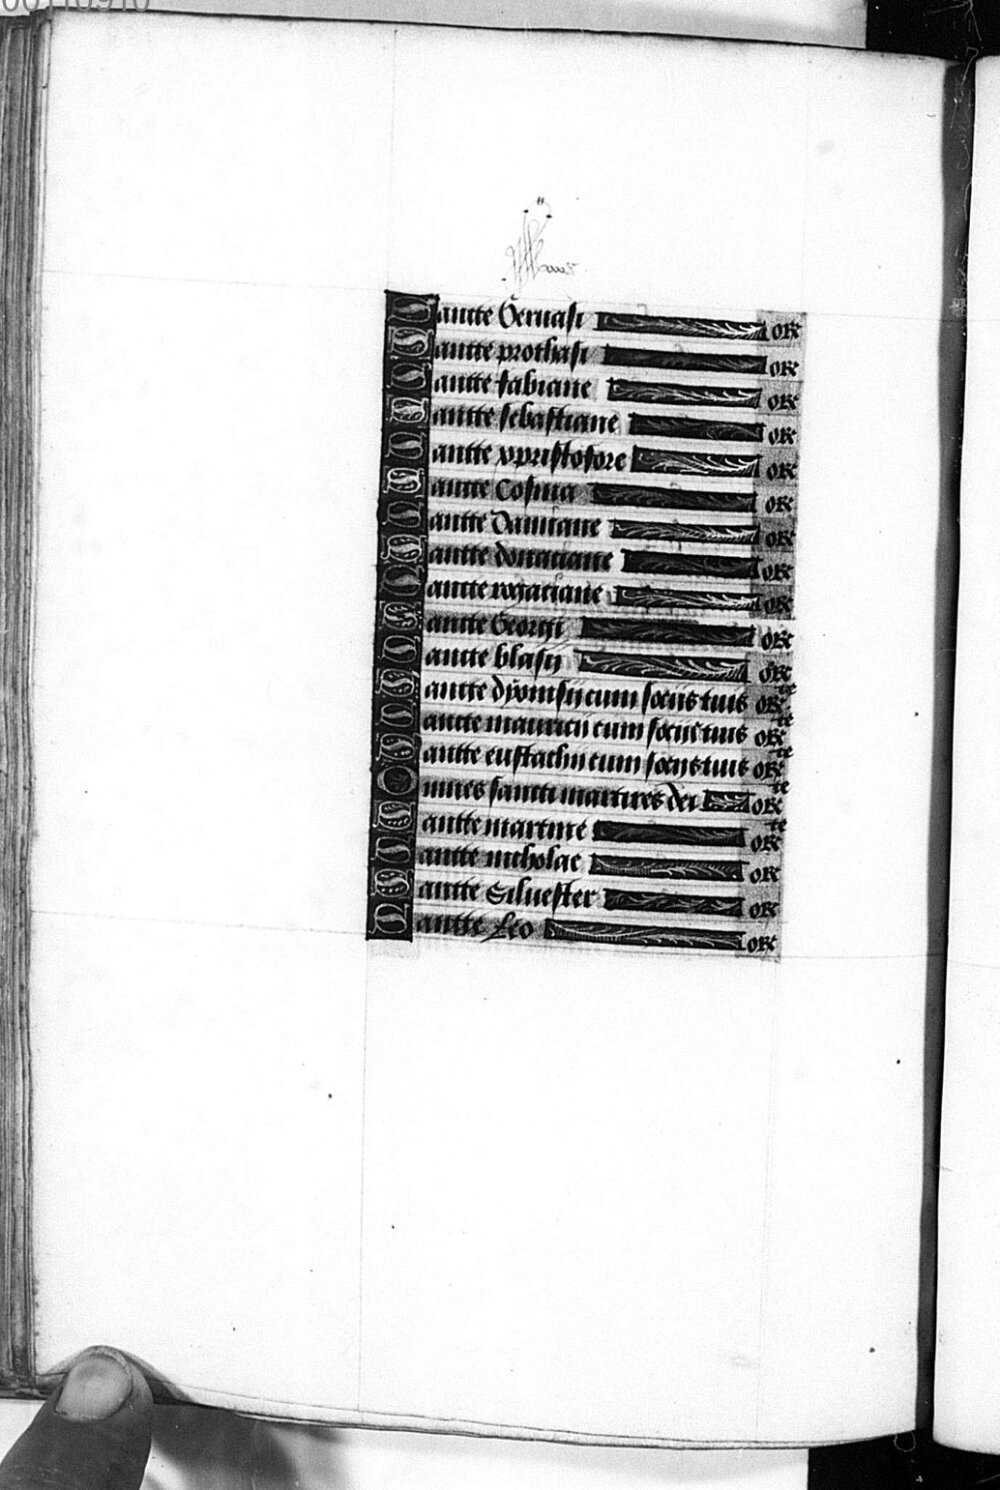 00110910
Sancte Geruasi or
Sancte prothasi or
Sancte fabiane or
Sancte sebastiane or
Sancte xpristofore or
Sancte Cosma or
Sancte Damiane or
Sancte donaciane or
Sancte rogaciane or
Sancte Georgi or
Sancte blasij or
Sancte dyonisij cum socijs tuis or
Sancte mauricij cum socijs tuis or te
Sancte eustachij cum socijs tuis or te
Omnes sancti martires dei or te
Sancte martine or te
Sancte nicholae or
Sancte Siluester or
Sancte Leo or